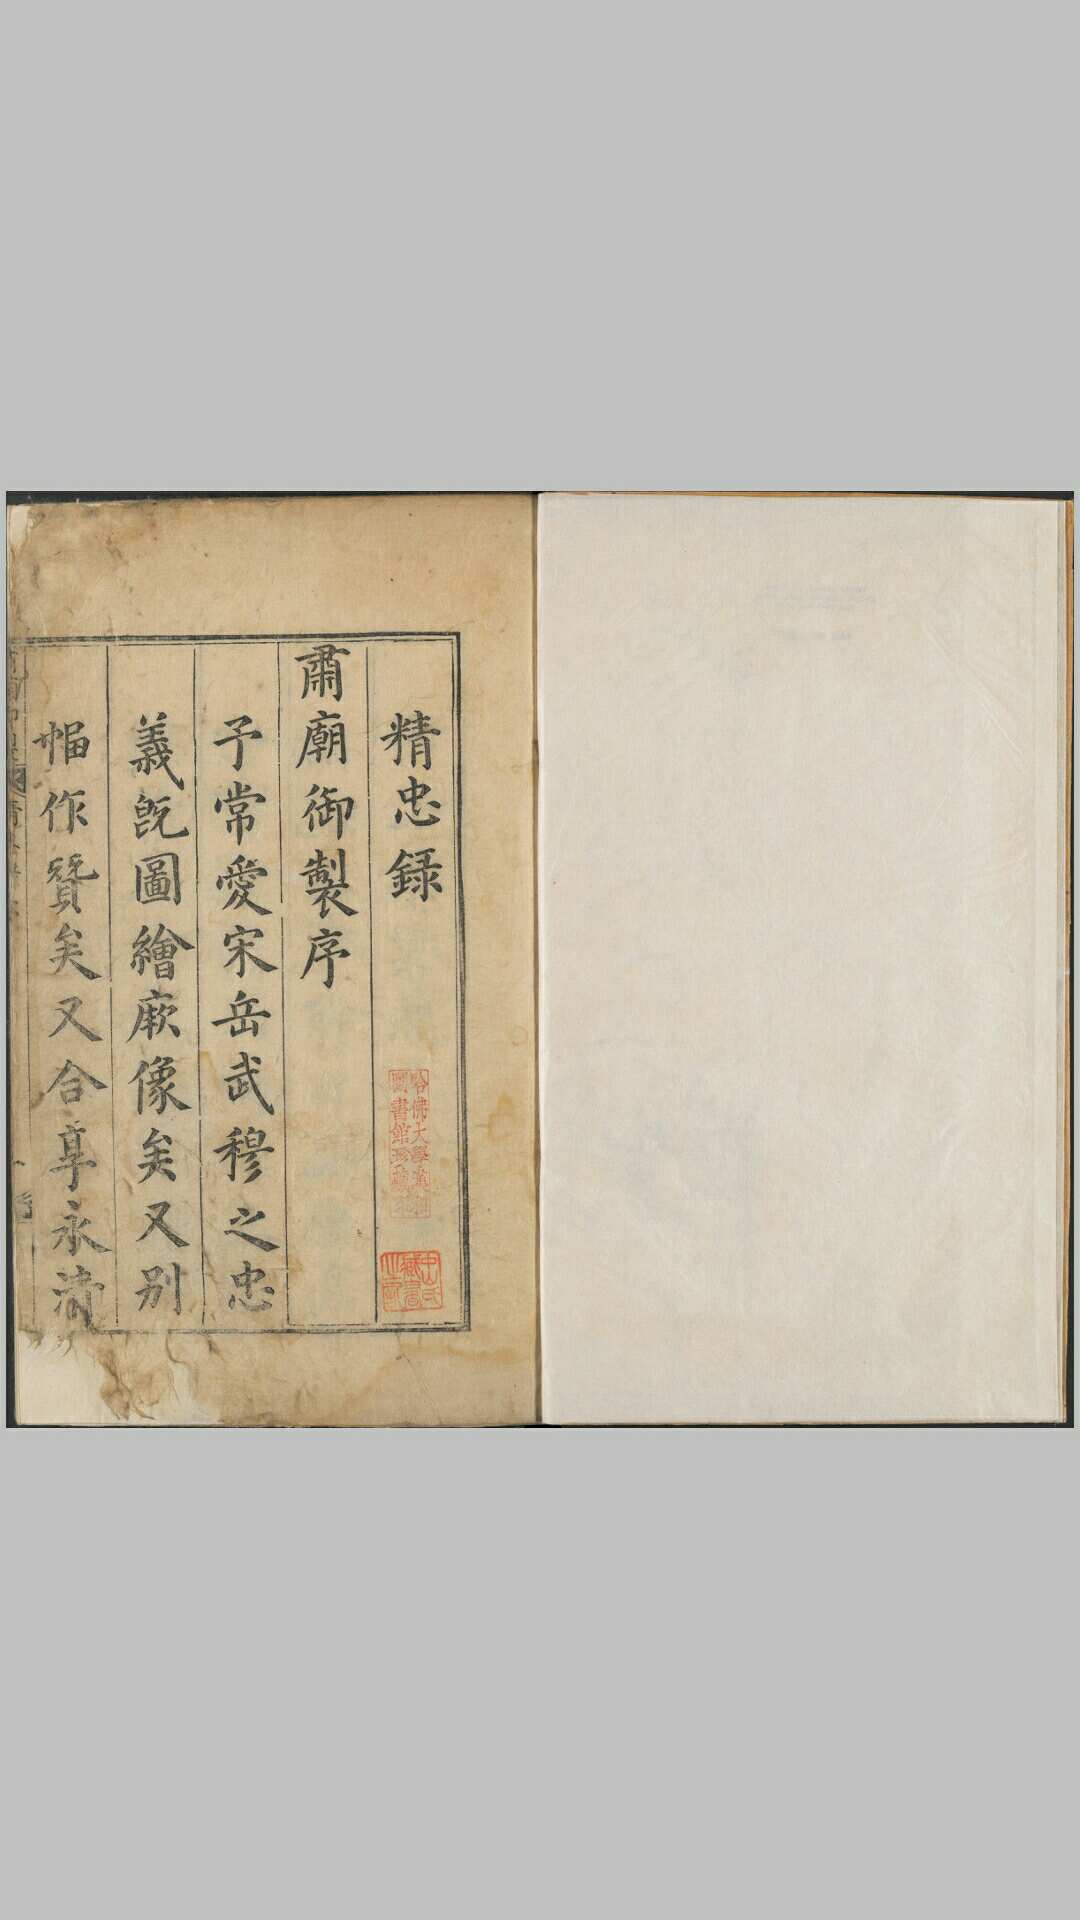 精忠録
肅廟御製序
予常愛宋岳武穆之忠
義旣圖繪厥像矣又別
幅作贊矣又合享永淸
哈佛大學
圖書館珍藏